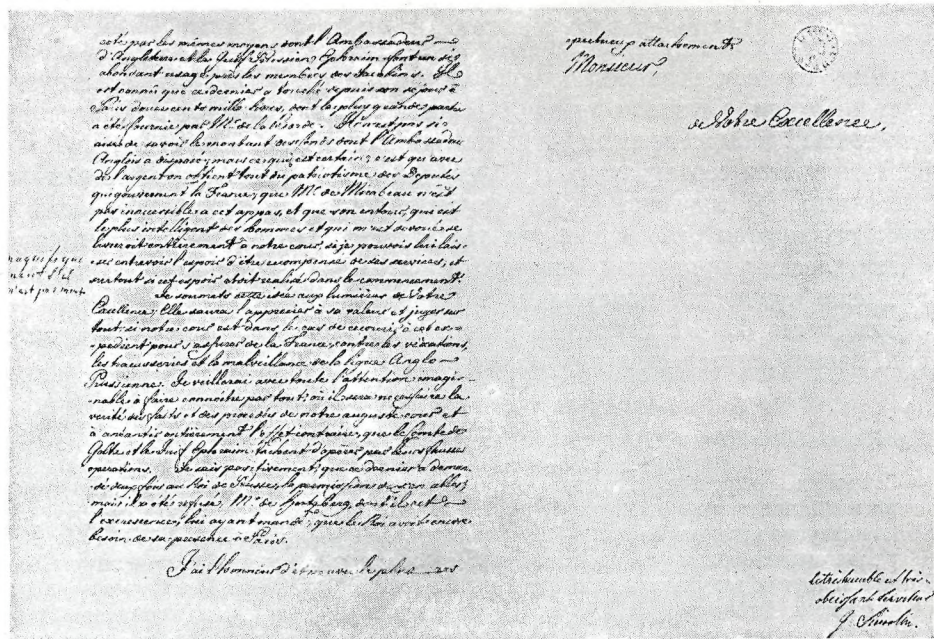 cotés par les mêmes moyens dont l'Ambassadeur
d'Angleterre et le Juif Prussien Ephraim font un si
abondant usage près les membres des Jacobins. Il
est connu que ce dernier a touché depuis son sejour à
Paris douze cents mille livres, dont la plus grande partie
a été fournie par Mr. de la Borde. Il n'est pas si
aisé de savoir le montant des fonds dont l'Ambassadeur
Anglois a disposé; mais ce qui est certain, c'est qu'avec
de l'argent on obtient tout du patriotisme des Deputés
qui gouvernent la France, que Mr. de Mirabeau n'est
pas inaccessible à cet appas, et que son entour, qui est
le plus intelligent des hommes et qui m'est devoué se
livreroit entièrement à notre cour, si je pouvois lui lais-
ser entrevoir l'espoir d'être recompensé de ses services, et
surtout si cet espoir etoit realisé dans le commencement.
Je soumets cette idée aux lumières de Votre
Excellence; Elle saura l'apprecier à sa valeur et juger sur
tout, si notre cour est dans le cas de recourir à cet ex-
pedient pour s'assurer de la France, contre les vexations,
les tracasseries et la malveillance de la ligue Anglo
Prussienne. Je veillerai avec toute l'attention imagi-
nable à faire connoitre par tout où il sera necessaire la
verité des faits et des procédés de notre auguste cour et
à anéantir entièrement l'effet contraire, que le Comte de
Goltz et le Juif Ephraim tachent d'operer par leurs fausses
operations. Je sais positivement, que ce dernier a deman-
dé deux fois au Roi de Prusse, la permission de s'en aller,
mais il a été refusé, Mr. de Hertzberg, dont il est
l'excressence, lui ayant mandé, que le Roi avoit encore
besoin de sa presence à Paris.
J'ai l'honneur d'être avec le plus res
n'est pas
pectueux attachement
Monsieur,
de Votre Excellence,
le très humble et très
obeissant Serviteur
J. Simolin.